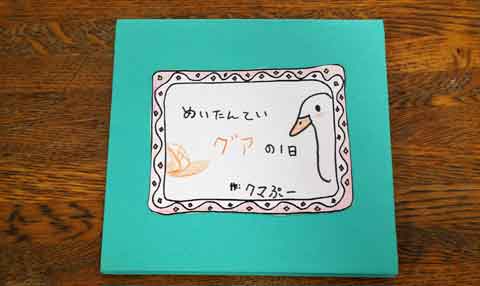 めいたんてい
グアの1日
作:クマぷー